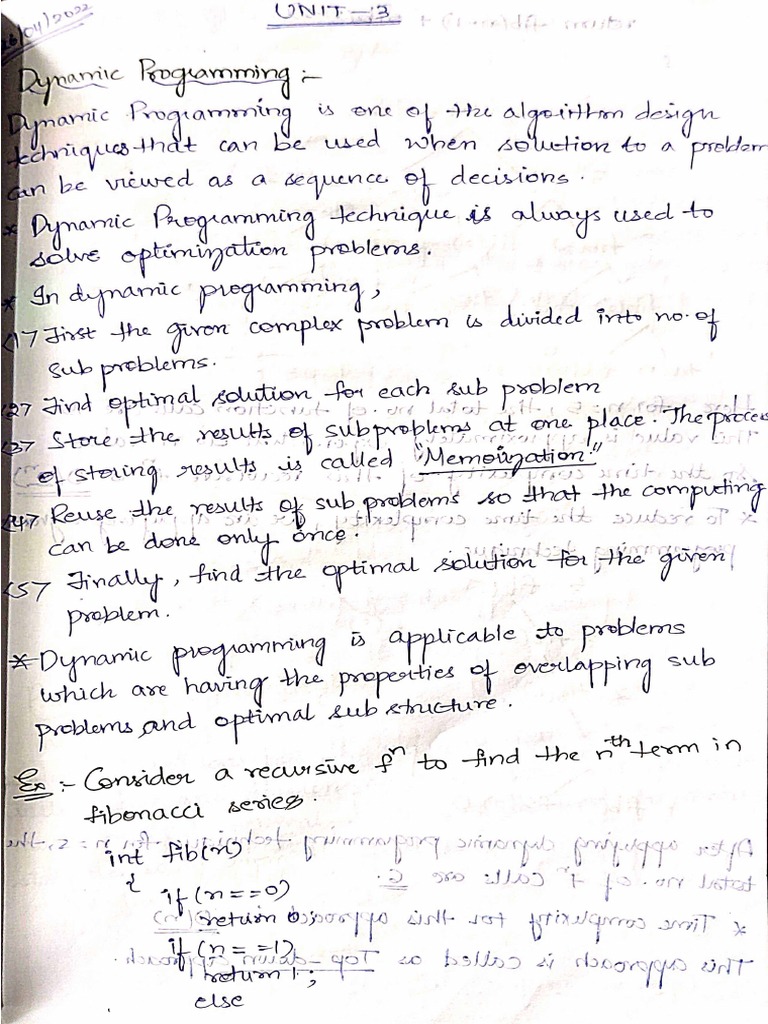 26/04/2022
UNIT-3
Dynamic Programming :-
Dynamic Programming is one of the algorithm design
techniques that can be used when solution to a problem
can be viewed as a sequence of decisions.
* Dynamic Programming technique is always used to
solve optimization problems.
* In dynamic programming,
<1> First the given complex problem is divided into no. of
sub problems.
<2> Find optimal solution for each sub problem
<3> Store the results of subproblems at one place. The process
of storing results is called "Memoization".
<4> Reuse the results of sub problems so that the computing
can be done only once.
<5> Finally, find the optimal solution for the given
problem.
* Dynamic programming is applicable to problems
which are having the properties of overlapping sub
problems and optimal sub structure.
Ex :- Consider a recursive fⁿ to find the nᵗʰ term in
fibonacci series.
int fib(n)
{
if (n==0)
return 0;
if (n==1)
return 1;
else